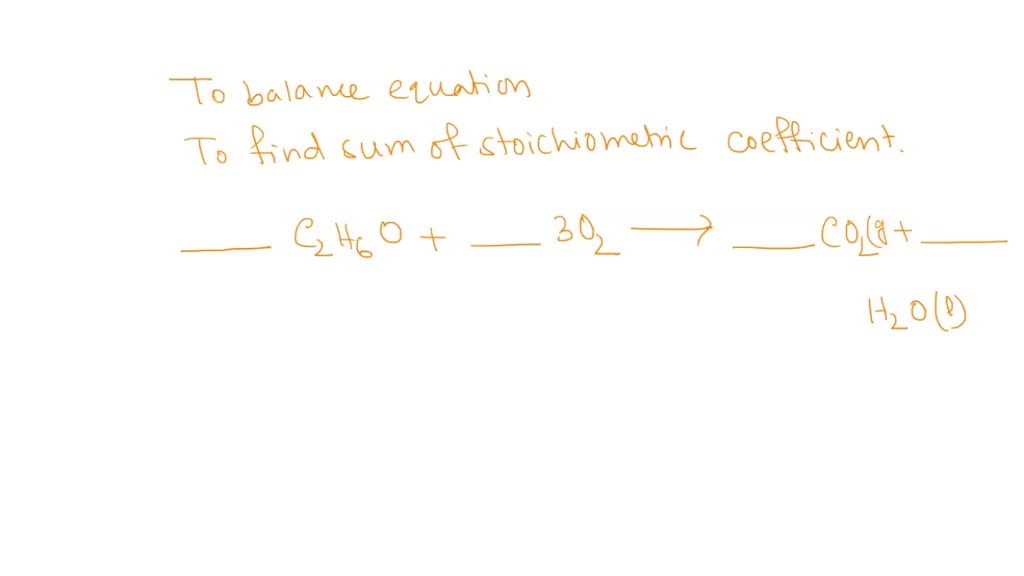 To balance equation
To find sum of stoichiometric coefficient.
___ C₂H₆O + ___ 3O₂ ⟶ ___ CO₂(g + ___
H₂O(l)